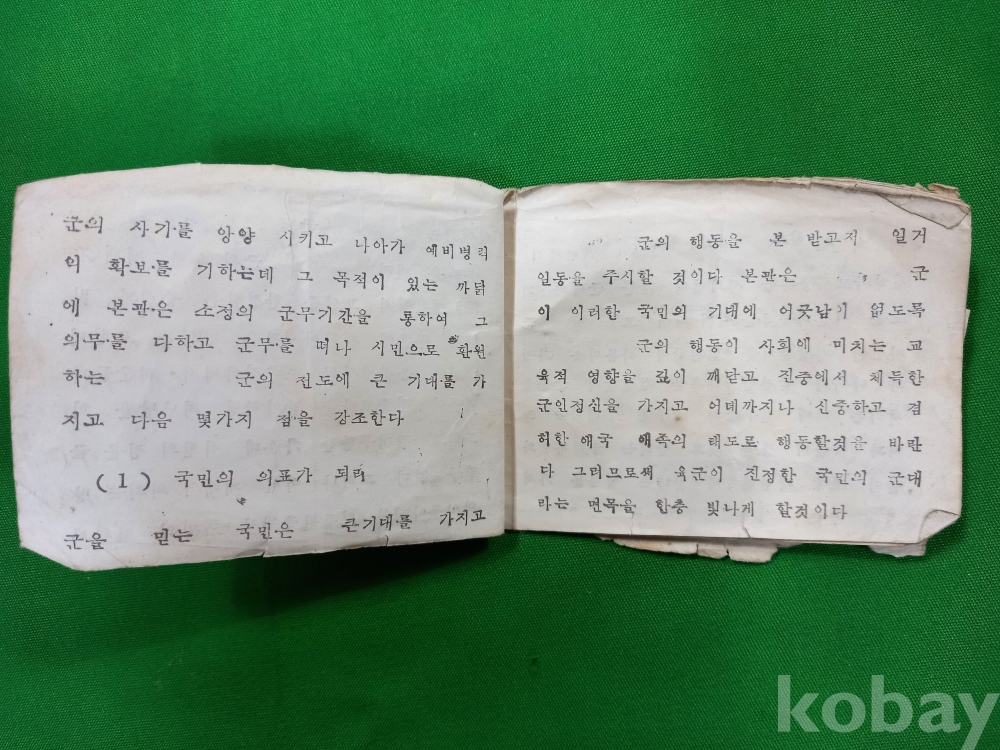 군의 사기를 앙양 시키고 나아가 예비병력
의 확보를 기하는데 그 목적이 있는 까닭
에 본관은 소정의 군무기간을 통하여 그
의무를 다하고 군무를 떠나 시민으로 환원
하는 군의 전도에 큰 기대를 가
지고 다음 몇가지 점을 강조한다
(1) 국민의 의표가 되라
군을 믿는 국민은 큰기대를 가지고
군의 행동을 본 받고저 일거
일동을 주시할 것이다 본관은 군
이 이러한 국민의 기대에 어긋남이 없도록
군의 행동이 사회에 미치는 교
육적 영향을 깊이 깨닫고 진중에서 체득한
군인정신을 가지고 어데까지나 신중하고 겸
허한 애국 애족의 태도로 행동할것을 바란
다 그러므로써 육군이 진정한 국민의 군대
라는 면목을 한층 빛나게 할것이다
kobay